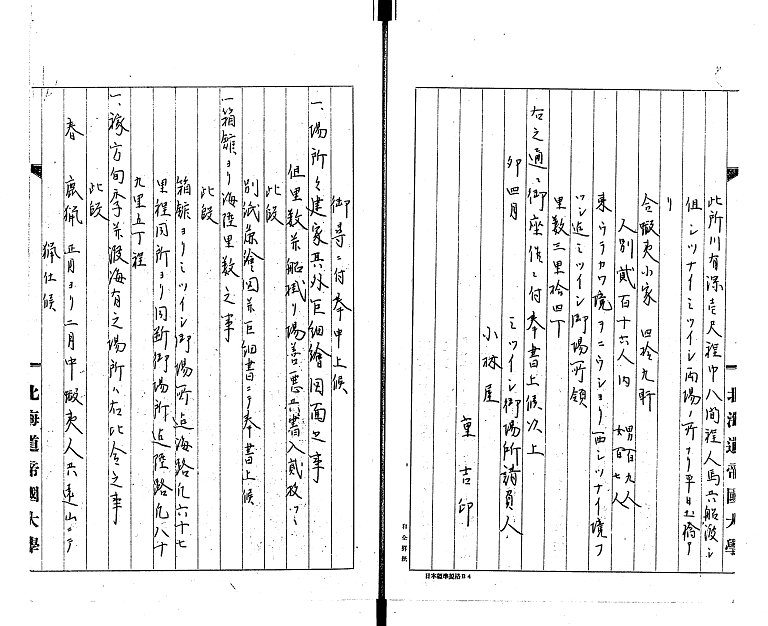 此所川有深壱尺程巾八間程人馬共船渡シ
但シツナイミツイシ両場ノ所ナリ平日土橋ア
リ
合蝦夷小家 四拾九軒
人別貳百十六人内 男百九人 女百七人
東ウラカワ境ヲニウシヨリ西シツナイ境フ
ツシ迄ミツイシ御場所領
里数三里拾四丁
右之通ニ御座候ニ付奉書上候以上
卯四月 ミツイシ御場所請負人
小林屋
重吉印
御尋ニ付奉申上候
一、場所々建家其外巨細繪図面之事
但里数并船掛リ場善悪共書入貳枚ツヽ
此段
別紙麁繪図并巨細書ニテ奉書上候
一箱館ヨリ海陸里数之事
此段
箱館ヨリミツイシ御場所迄海路凡六十七
里程同所ヨリ同断御場所迄陸路凡八十
九里五丁程
一、稼方旬季并渡海有之場所ハ右比合之事
此段
春 鹿猟 正月ヨリ二月中蝦夷人共遠山ニテ
猟仕候
北海道帝國大學
北海道帝國大學
日本標準規格B4